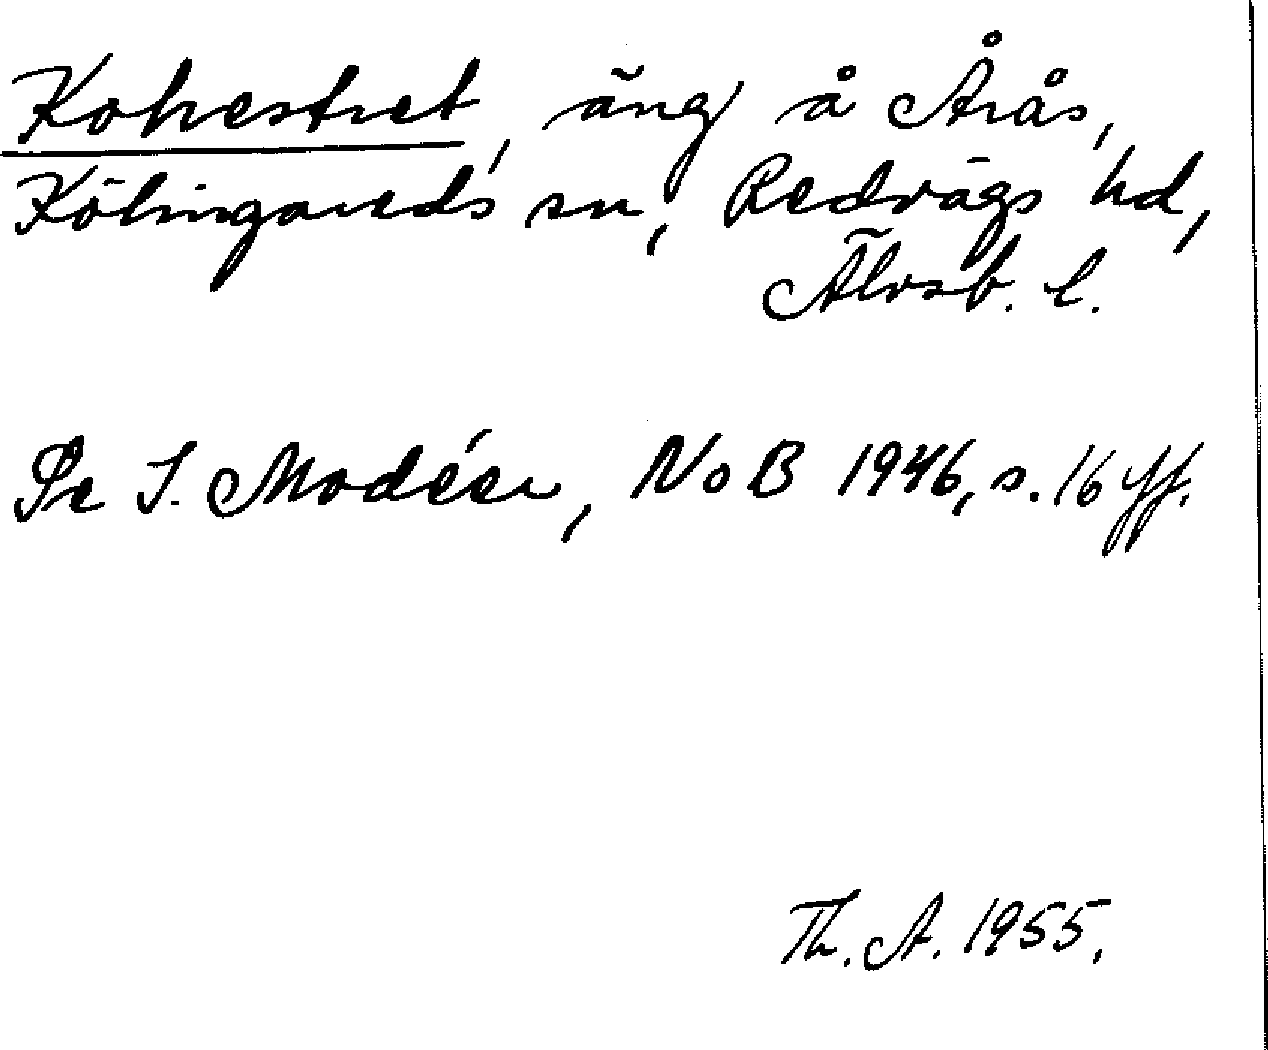 Kohestret, äng å Årås,
Kölingareds sn, Redvägs hd,
Älvsb. l.
Se I. Modéer, NoB 1946, s. 16 ff.
Th. A. 1955.